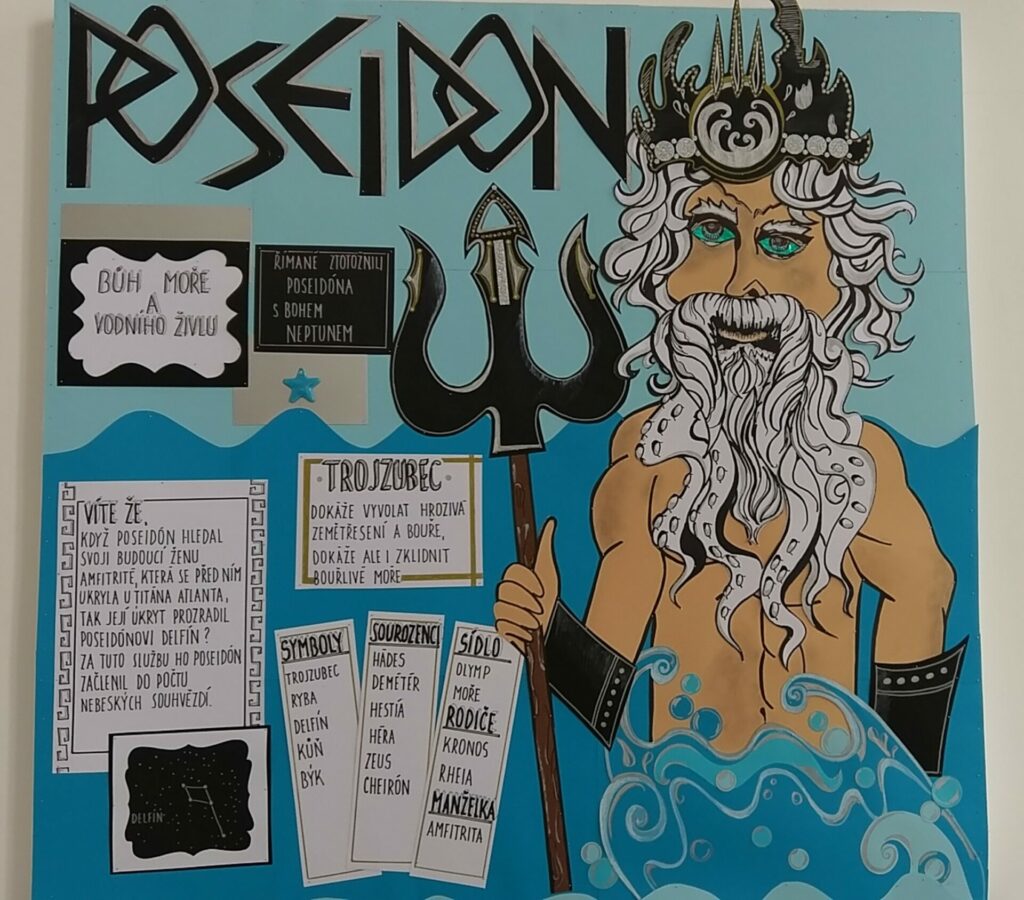 POSEIDON
BŮH MOŘE
A
VODNÍHO ŽIVLU
ŘÍMANÉ ZTOTOŽNILI
POSEIDÓNA
S BOHEM
NEPTUNEM
TROJZUBEC
DOKÁŽE VYVOLAT HROZIVÁ
ZEMĚTŘESENÍ A BOUŘE,
DOKÁŽE ALE I ZKLIDNIT
BOUŘLIVÉ MOŘE
VÍTE ŽE,
KDYŽ POSEIDÓN HLEDAL
SVOJI BUDOUCÍ ŽENU
AMFITRITÉ, KTERÁ SE PŘED NÍM
UKRYLA U TITÁNA ATLANTA,
TAK JEJÍ ÚKRYT PROZRADIL
POSEIDÓNOVI DELFÍN?
ZA TUTO SLUŽBU HO POSEIDÓN
ZAČLENIL DO POČTU
NEBESKÝCH SOUHVĚZDÍ.
DELFÍN
SYMBOLY
TROJZUBEC
RYBA
DELFÍN
KŮŇ
BÝK
SOUROZENCI
HÁDES
DEMÉTÉR
HESTIÁ
HÉRA
ZEUS
CHEIRÓN
SÍDLO
OLYMP
MOŘE
RODIČE
KRONOS
RHEIA
MANŽELKA
AMFITRITA